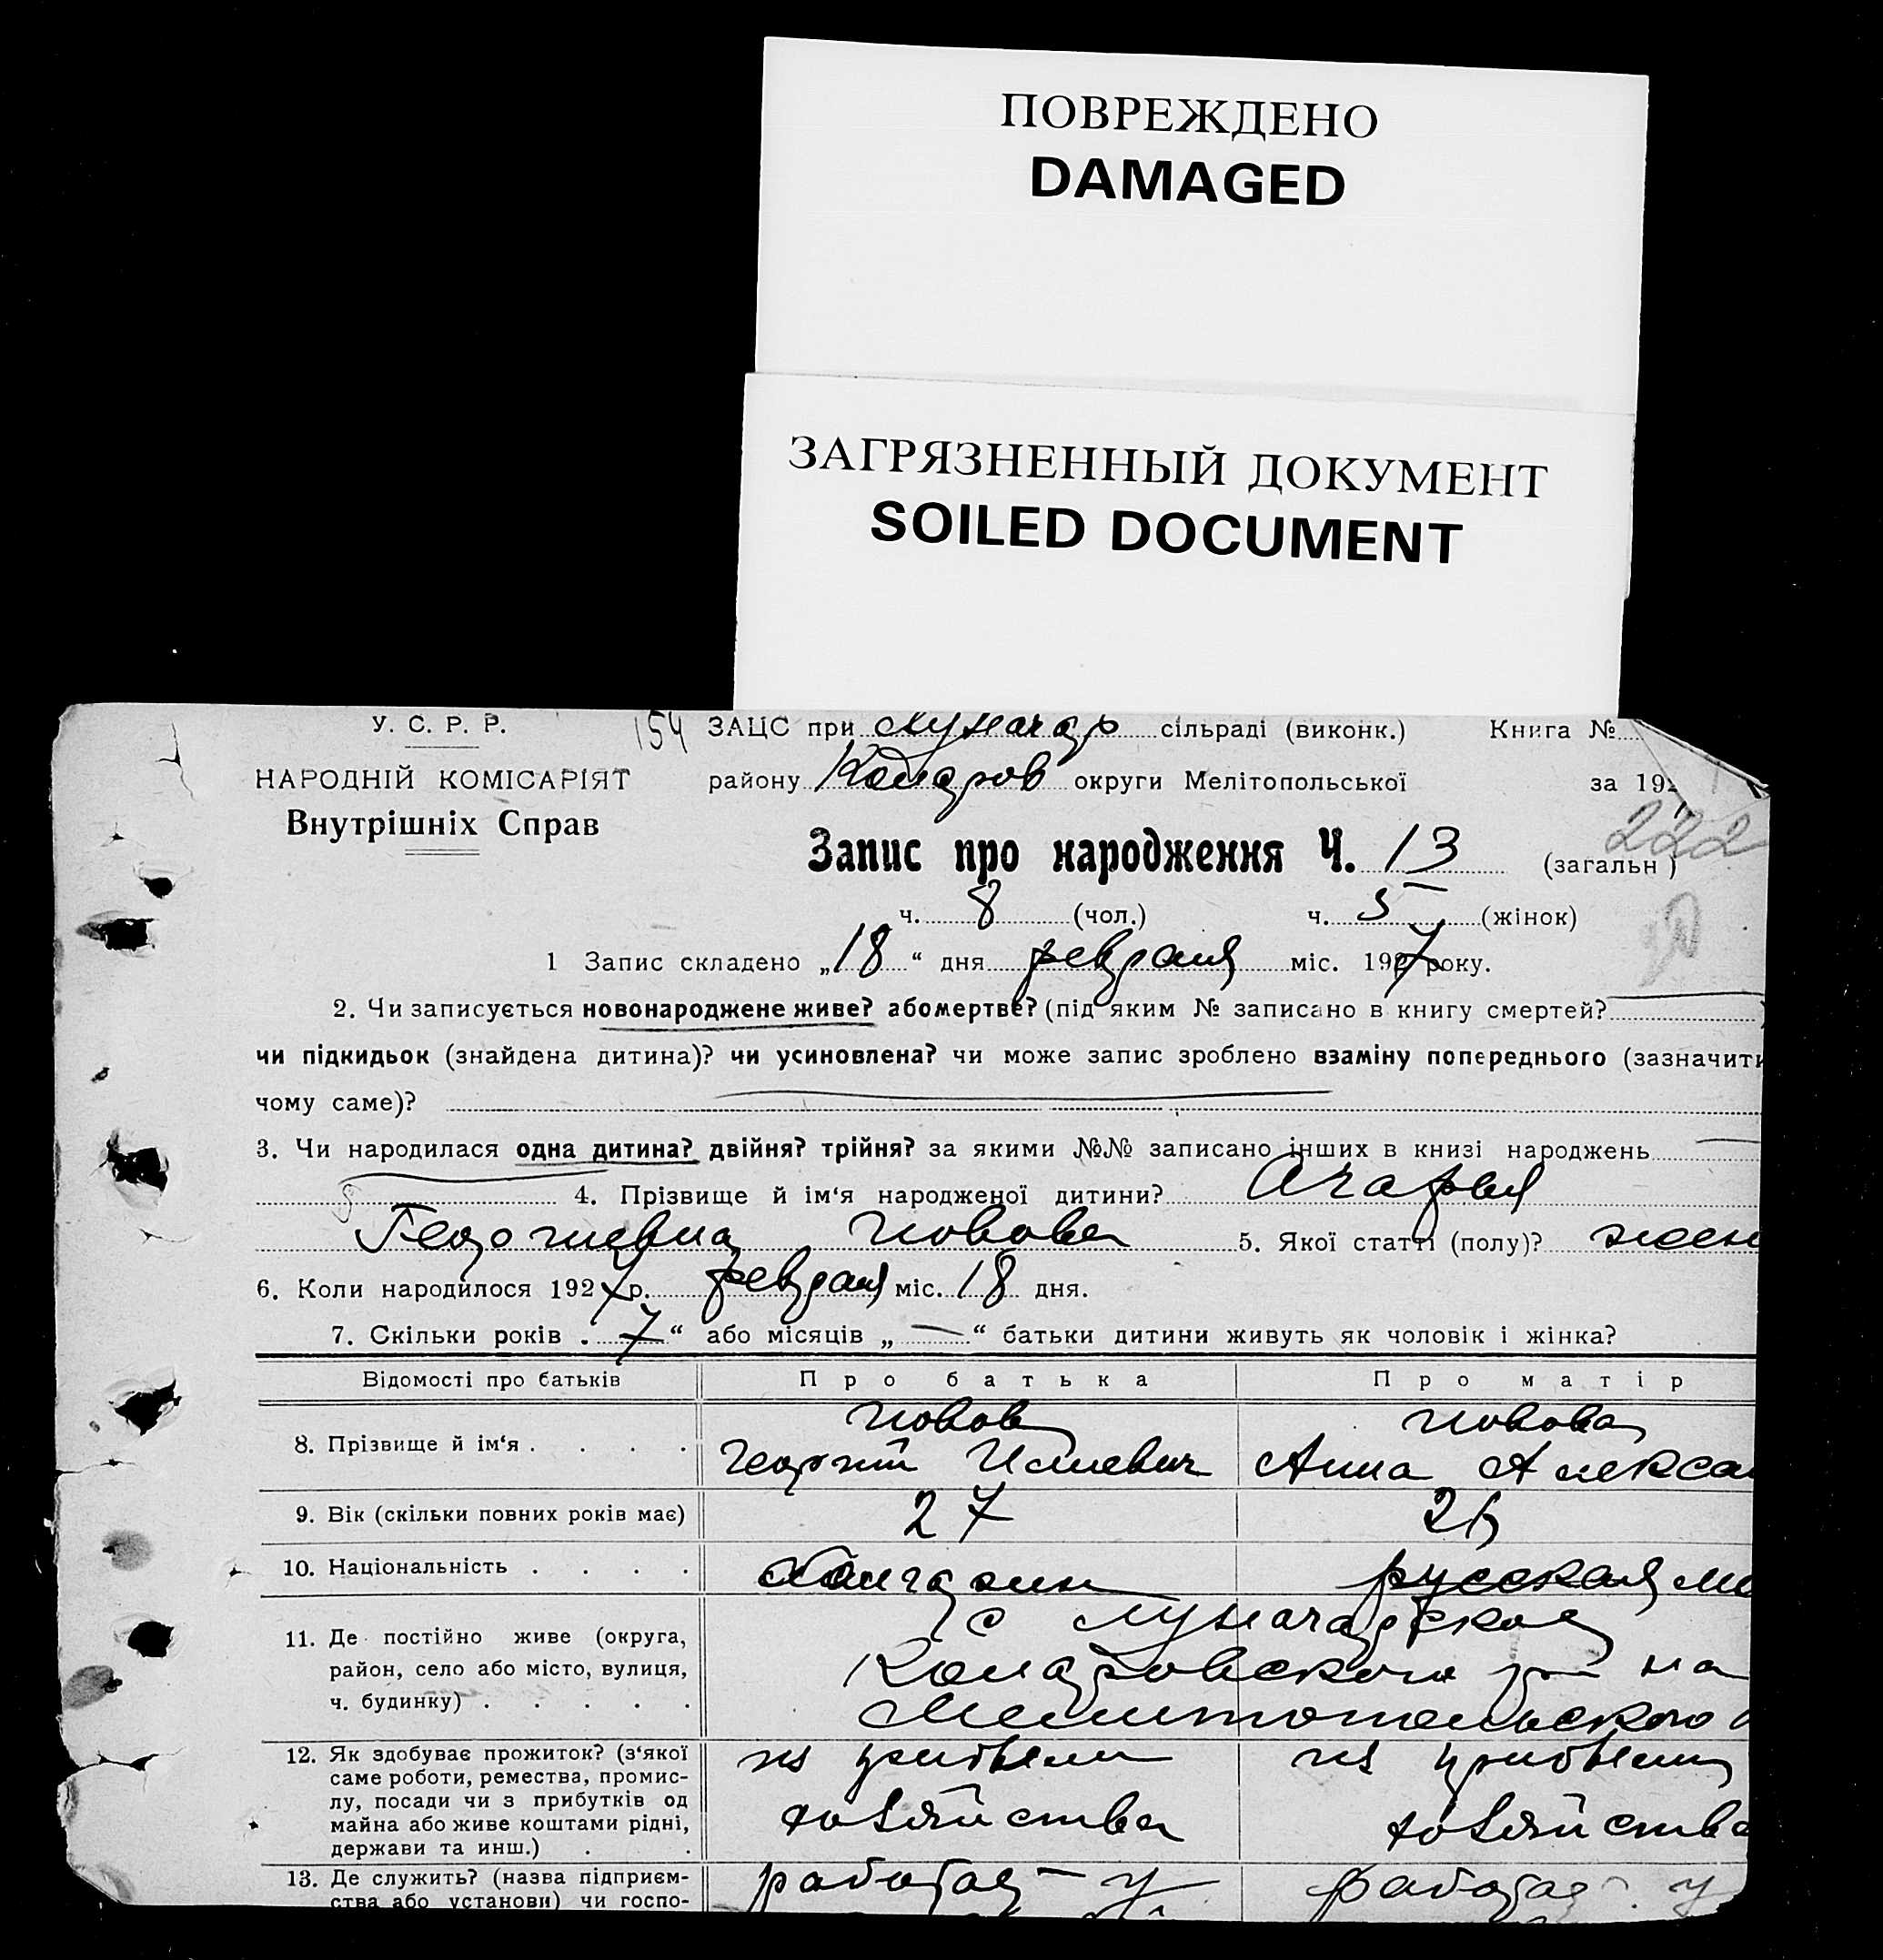 ПОВРЕЖДЕНО
DAMAGED
ЗАГРЯЗНЕННЫЙ ДОКУМЕНТ
SOILED DOCUMENT
У. С. Р. Р. 154 ЗАЦС при Луначар сільраді (виконк.) Книга №
НАРОДНІЙ КОМІСАРІЯТ району округи Мелітопольської за 192
Внутрішніх Справ
222
Запис про народження Ч. 13 (загальн)
ч. 8 (чол.) ч. 5 (жінок)
1 Запис складено „18“ дня февраля міс. 1927 року.
2. Чи записується новонароджене живе? або мертве? (під яким № записано в книгу смертей?
чи підкидьок (знайдена дитина)? чи усиновлена? чи може запис зроблено взаміну попереднього (зазначити
чому саме)?
3. Чи народилася одна дитина? двійня? трійня? за якими №№ записано інших в книзі народжень
4. Прізвище й ім‘я народженої дитини? Агафья
Георгиевна 5. Якої статті (полу)? жен
6. Коли народилося 1927 р. февраля міс. 18 дня.
7. Скільки років „7“ або місяців „—“ батьки дитини живуть як чоловік і жінка?
Відомості про батьків Про батька Про матір
8. Прізвище й ім‘я . . . .
Георгий Ильевич Анна Алекса
9. Вік (скільки повних років має) 27 26
10. Національність . . . . русская
11. Де постійно живе (округа, с Луначарское
район, село або місто, вулиця, р-на
ч. будинку) . . . . . Мелитопольского
12. Як здобуває прожиток? (з‘якої
саме роботи, ремества, промис-
лу, посади чи з прибутків од хозяйства хозяйства
майна або живе коштами рідні,
держави та инш.) . .
13. Де служить? (назва підприєм- работает у работает у
ства або установи) чи госпо-